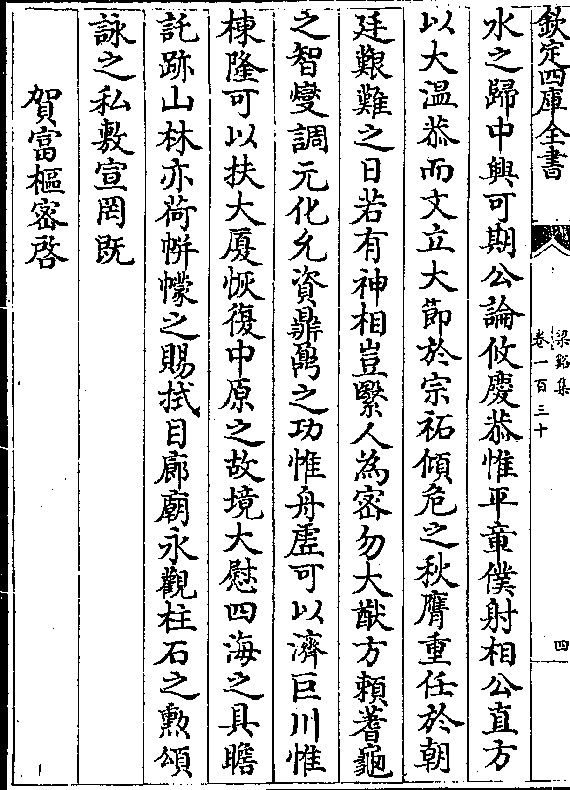 欽定四庫全書
梁谿集
卷一百三十
四
水之歸中興可期公論攸慶恭惟平章僕射相公直方
以大温恭而文立大節於宗祏傾危之秋膺重任於朝
廷艱難之日若有神相豈繫人為密勿大猷方賴蓍龜
之智燮調元化允資鼎鼐之功惟舟虛可以濟巨川惟
棟隆可以扶大厦恢復中原之故境大慰四海之具瞻
託跡山林亦荷帡幪之賜拭目廊廟永觀柱石之勲頌
詠之私敷宣罔既
賀富樞密啓